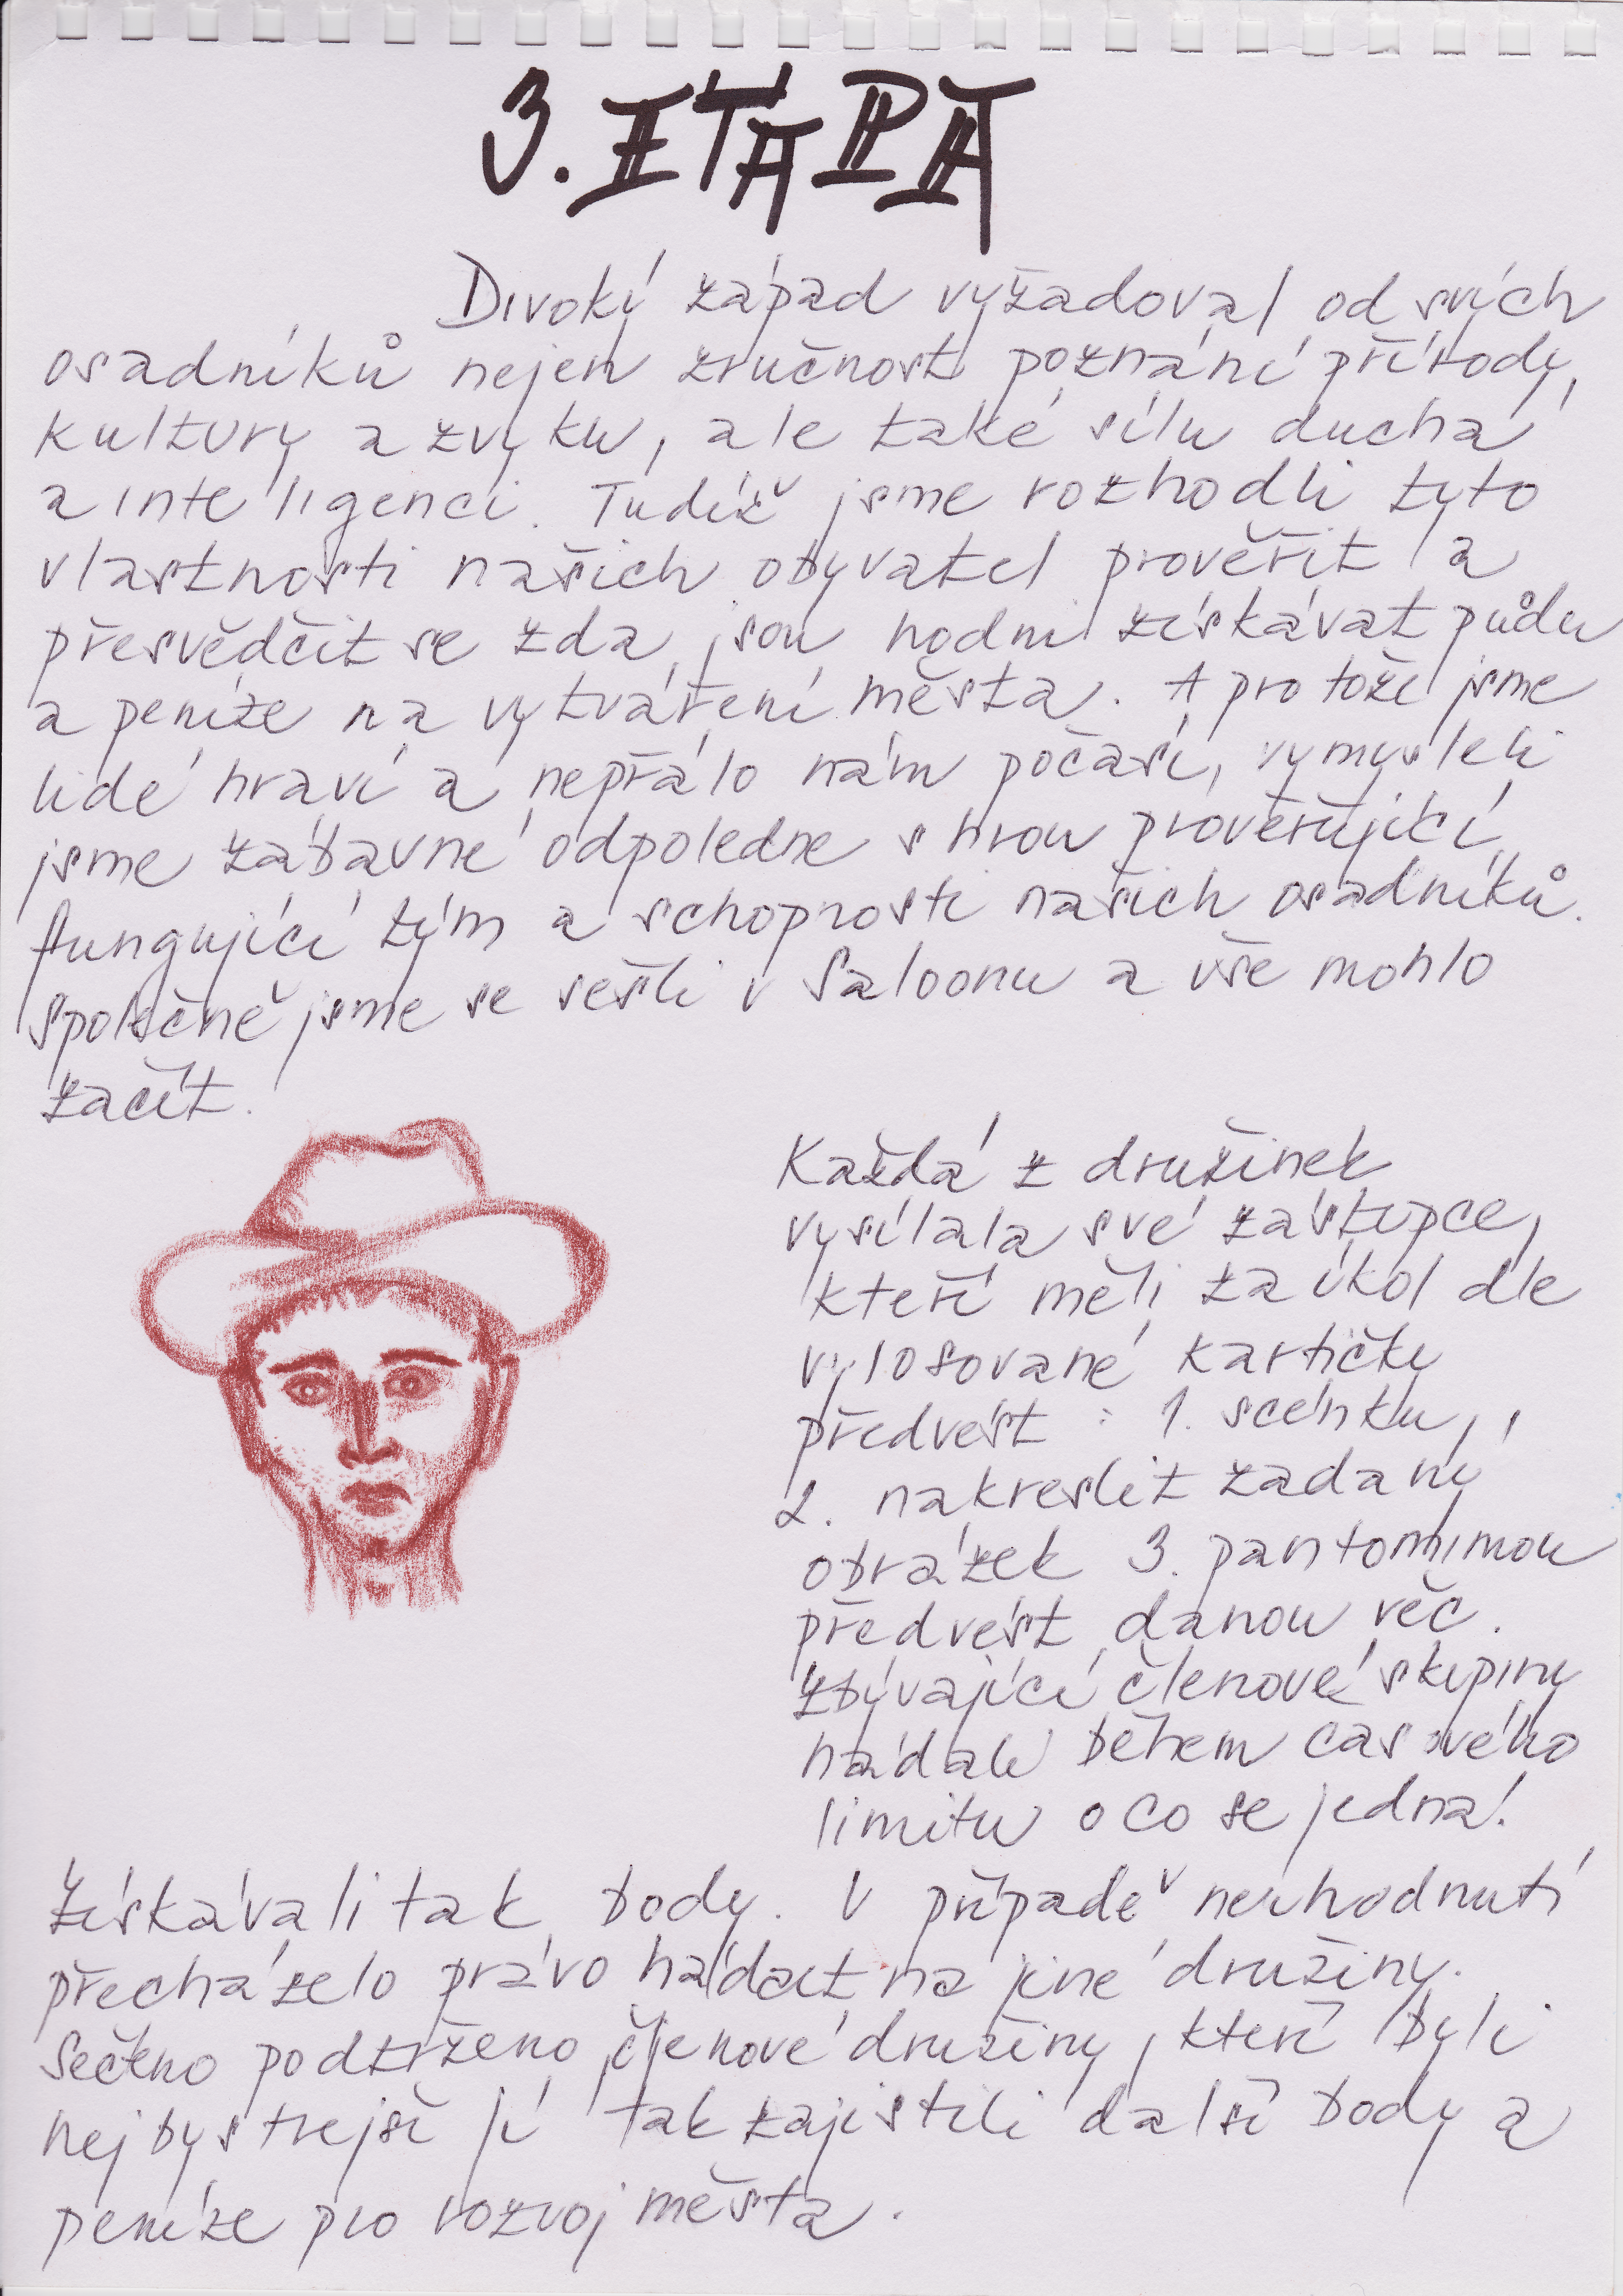 3. ETAPA
Divoký západ vyžadoval od svých
osadníků nejen zručnost poznání přírody,
kultury a zvyku, ale také sílu ducha
a inteligenci. Tudíž jsme rozhodli tyto
vlastnosti našich obyvatel prověřit a
přesvědčit se zda jsou hodni získávat půdu
a peníze na vytváření města. A protože jsme
lidé hraví a nepřálo nám počasí, vymysleli
jsme zábavné odpoledne s hrou prověřující
fungující tým a schopnosti našich osadníků.
Společně jsme se sešli v Saloonu a vše mohlo
začít.
Každá z družinek
vysílala své zástupce,
kteří měli za úkol dle
vylosované kartičky
předvést : 1. scénku,
2. nakreslit zadaný
obrázek 3. pantomimou
předvést danou věc.
Zbývající členové skupiny
hádali během časového
limitu o co se jedná!
Získávali tak body. V případě neuhodnutí
přecházelo právo hádat na jiné družiny.
Sečteno podtrženo členové družiny, kteří byli
nejbystřejší jí tak zajistili další body a
peníze pro rozvoj města.